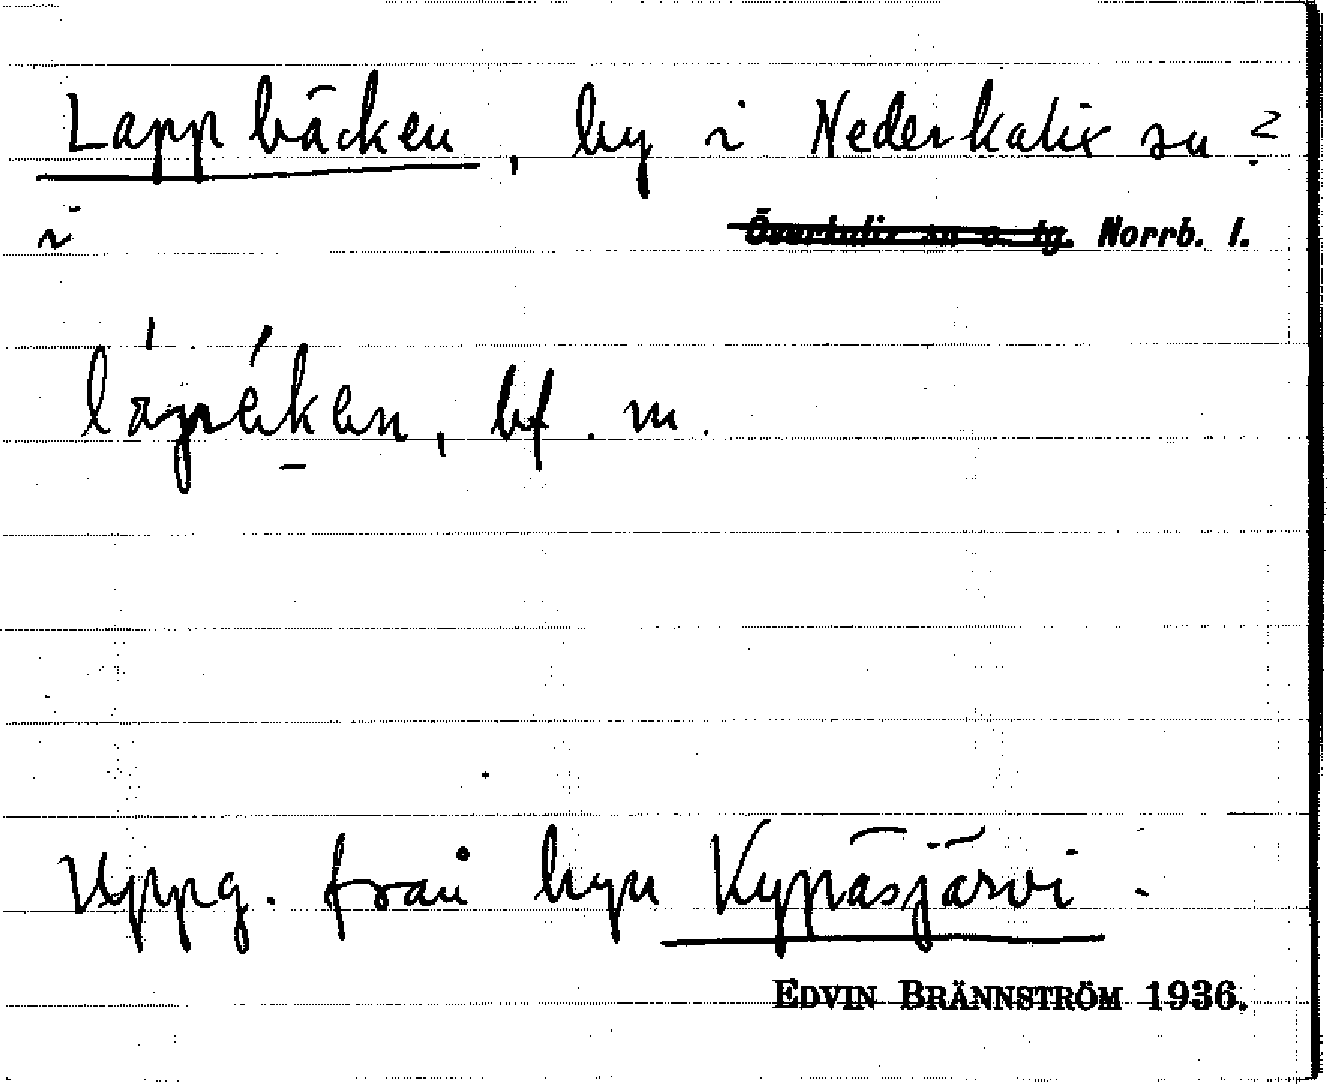 Lappbäcken, by i Nederkalix sn ?
i
~~Överkalix sn o. tg.~~ Norrb. l.
lápékən, bf. m.
Uppg. från byn Kypäsjärvi.
EDVIN BRÄNNSTRÖM 1936.